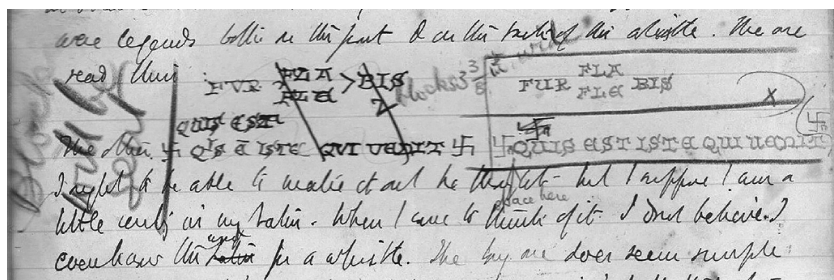 were legends both on the front & on the back of the whistle. The one
read thus
FLA
FUR FLE > BIS
blocks 3 3/8 in. wide
FLA
FUR FLE BIS
X
QUIS EST
The other 卐 Q'S E ISTE QUI VENIT 卐
卐 QUIS EST ISTE QUI UENIT 卐
I ought to be able to make it out he thought - but I suppose I am a
space here
little rusty in my Latin. When I come to think of it I don't believe I
word
even know the Latin for a whistle. The long one does seem simple
Block
will be